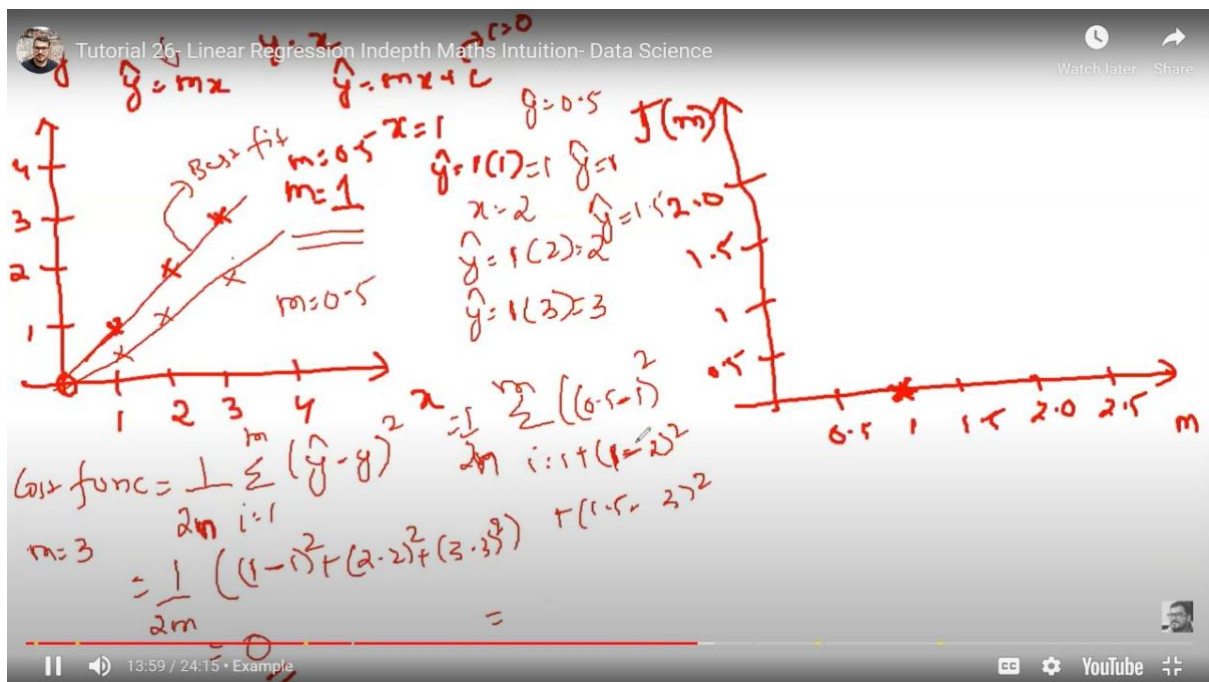 Tutorial 26- Linear Regression Indepth Maths Intuition- Data Science
Watch later Share
ŷ = mx
y = x
ŷ = mx + c
c > 0
Best fit
m = 0.5
m = 1
m = 0.5
x = 1
ŷ = 1(1) = 1
x = 2
ŷ = 1(2) = 2
ŷ = 1(3) = 3
ŷ = 0.5
ŷ = 1
ŷ = 1.5
4
3
2
1
1 2 3 4
x
J(m)
2.0
1.5
1
0.5
0.5 1 1.5 2.0 2.5 m
Cost func = 1/2m Σ i=1 m (ŷ - y)²
m = 3
= 1/2m ((1-1)² + (2-2)² + (3-3)²)
= 0
= 1/2m Σ i=1 m ((0.5-1)²
+ (1-2)²
+ (1.5-3)²
=
13:59 / 24:15 • Example
CC
YouTube